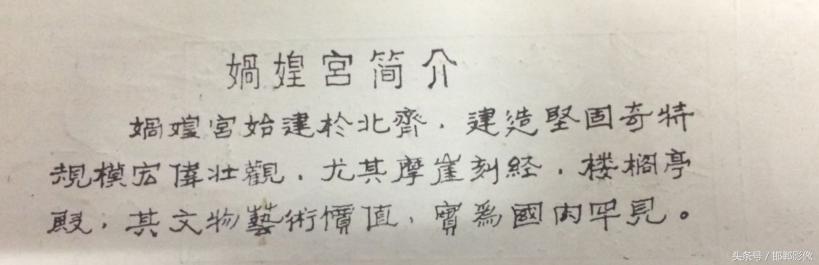 媧媓宮简介
媧媓宮始建於北齊，建造堅固奇特
規模宏偉壯觀，尤其摩崖刻経，楼榈亭
殿，其文物藝術價值，實為國内罕見。
头条号/邯郸影像